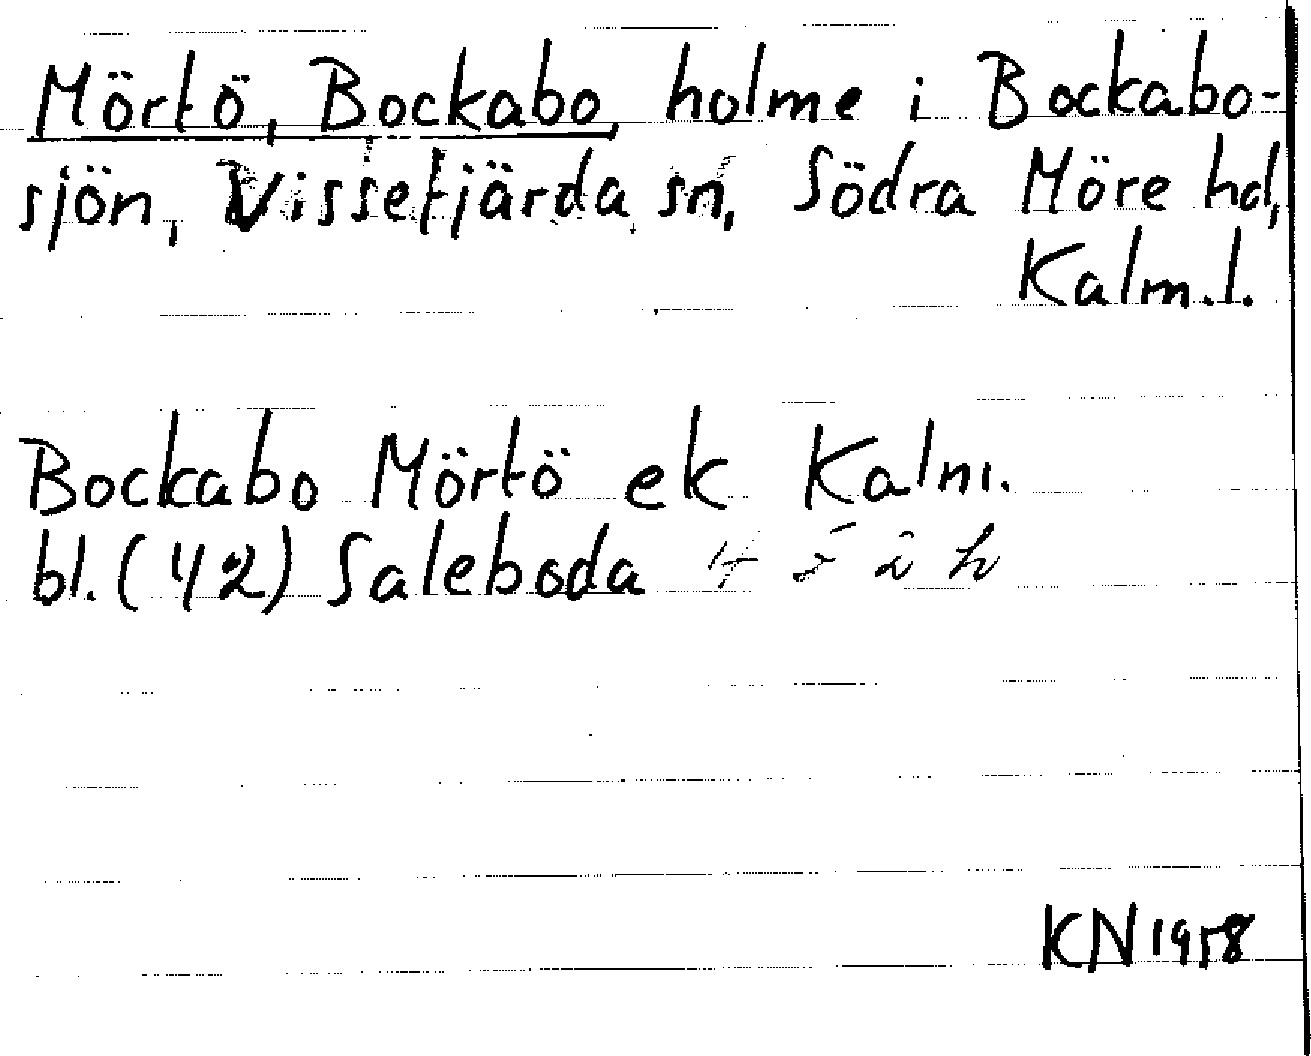 Mörtö, Bockabo, holme i Bockabo-
sjön, Vissefjärda sn, Södra Möre hd,
Kalm.l.
Bockabo Mörtö ek Kalm.
bl. (42) Saleboda 4 5 i h
KN 1958